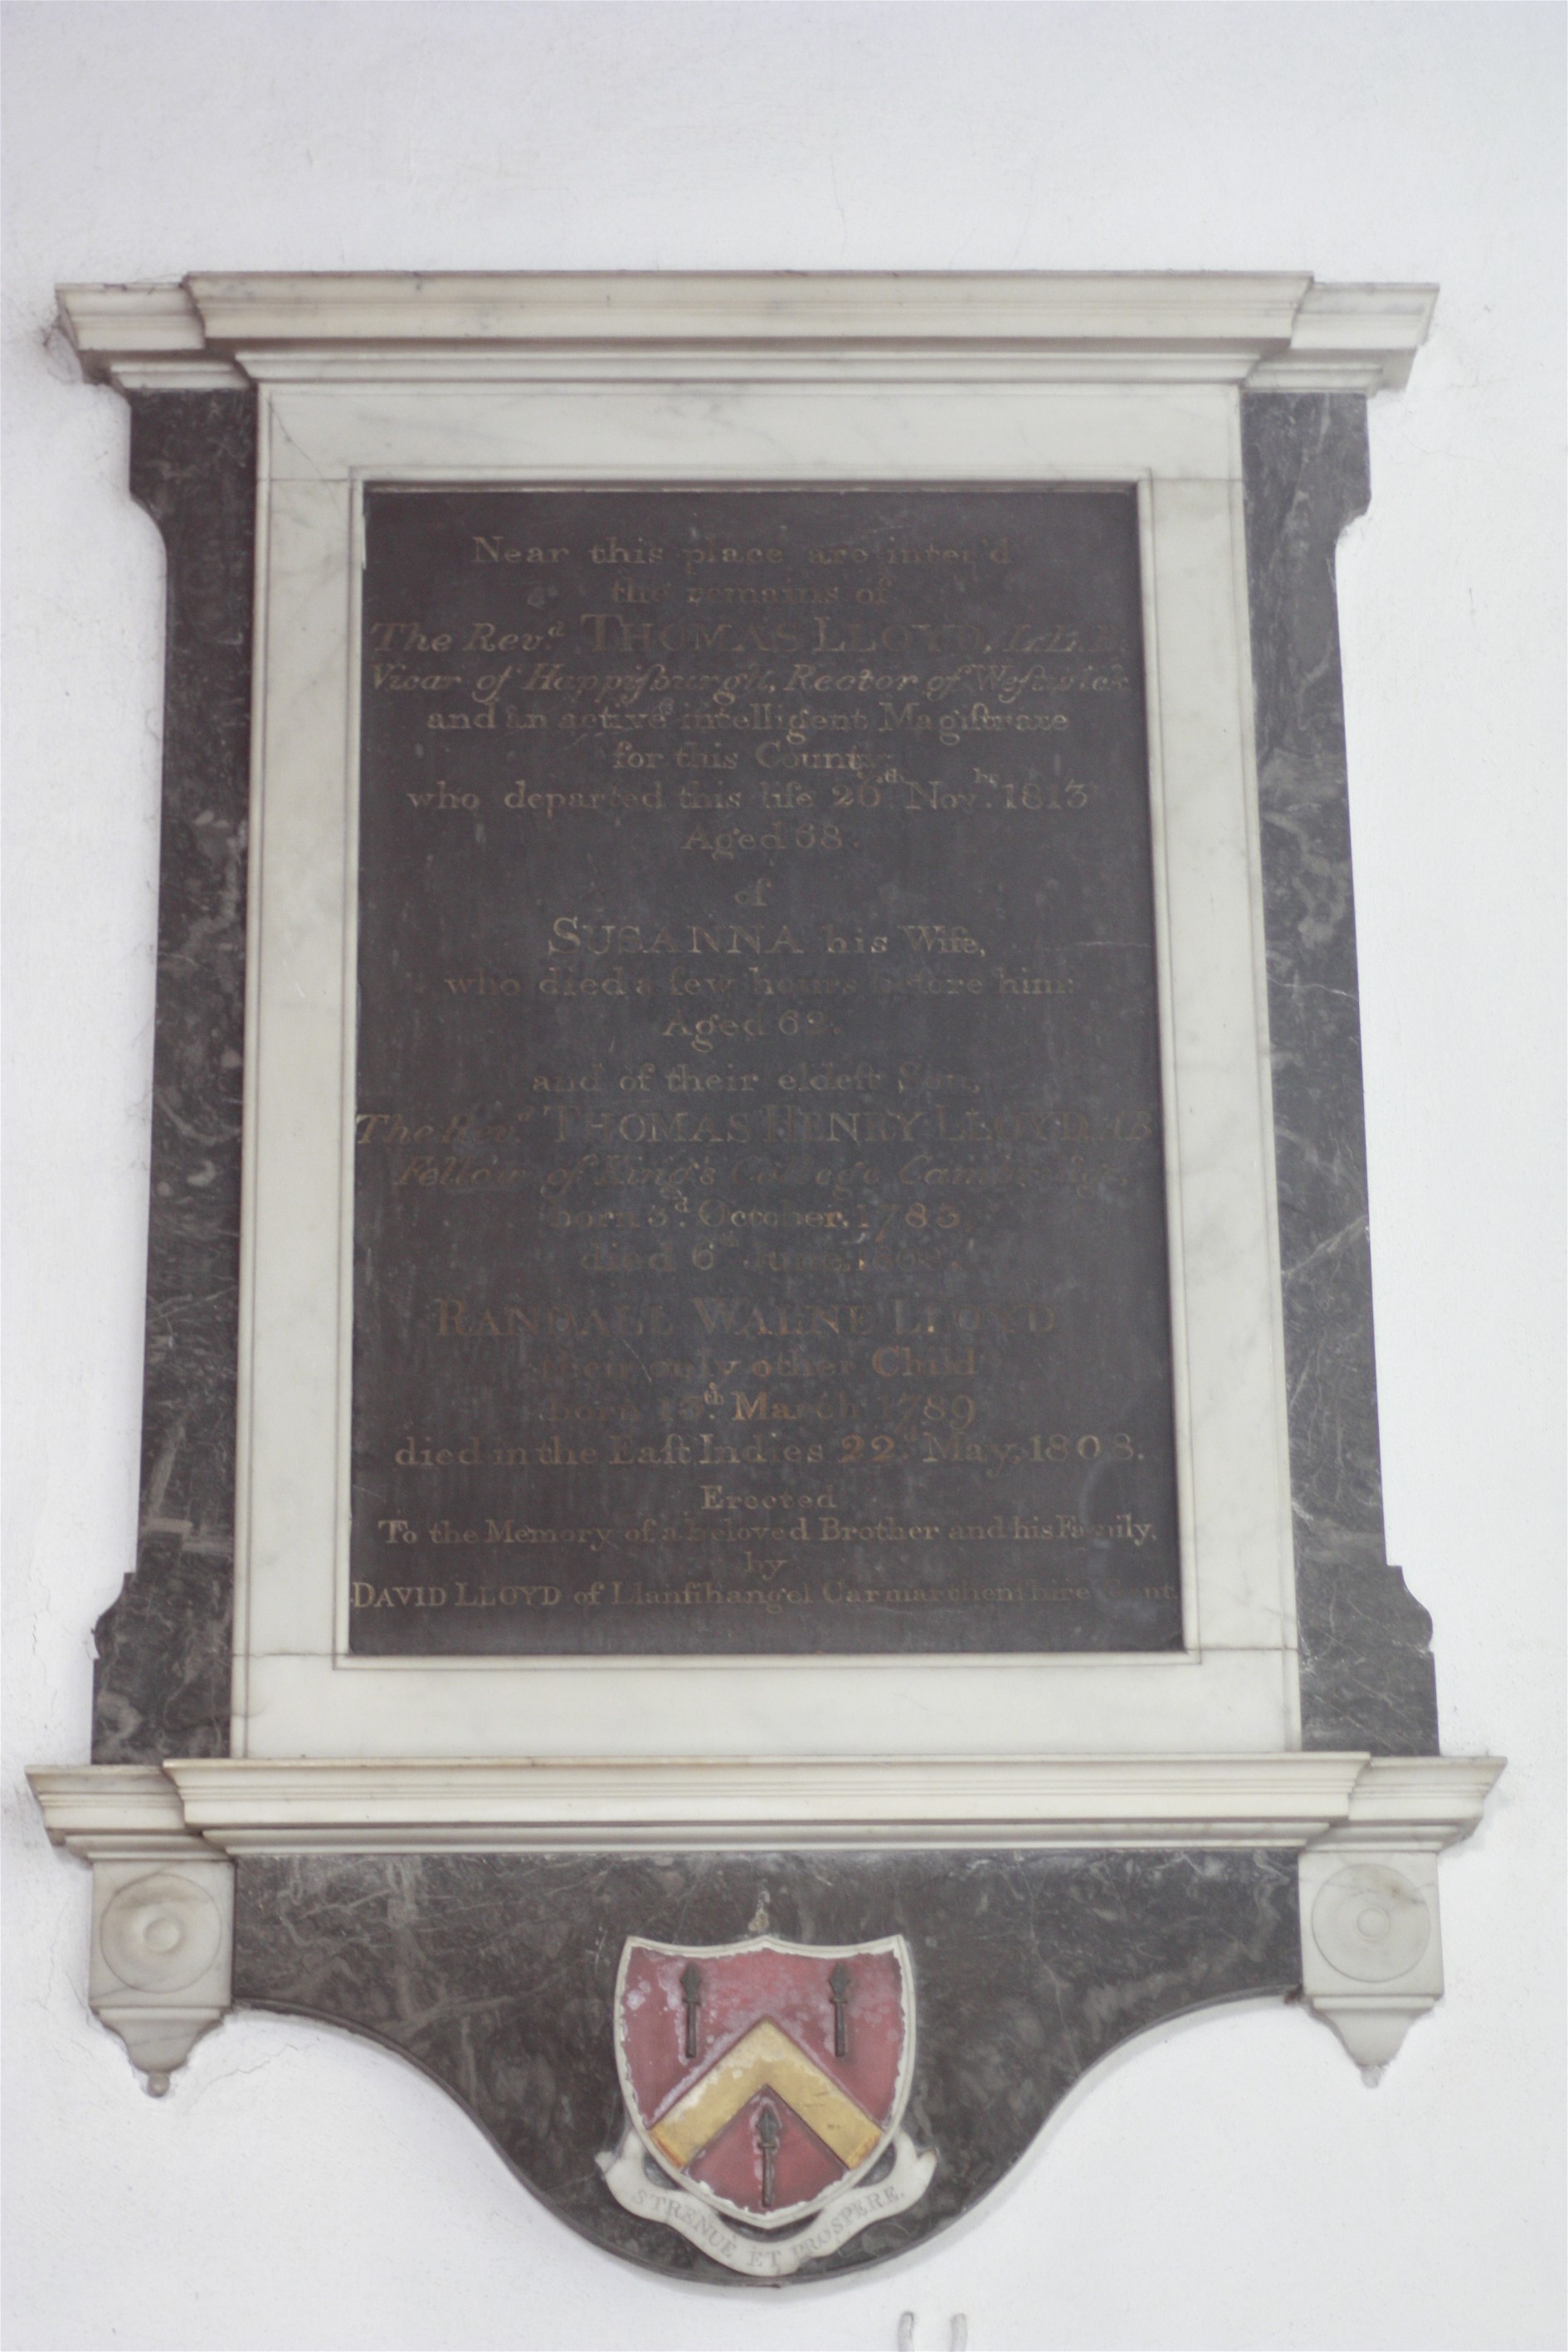 Near this place are inter'd
the remains of
The Revd. THOMAS LLOYD, L.L.B.
Vicar of Happiſburgh, Rector of Weſtwick
and an active intelligent Magiſtrate
for this County
who departed this life 26th. Novbr. 1813
Aged 68.
of
SUSANNA his Wife,
who died a few hours before him:
Aged
and of their eldeſt Son,
The Revd. THOMAS HENRY LLOYD, AB
Fellow of King's College Cambridge,
born 3d. October, 178
died 6th June,
RANDALL WALNE LLOYD
their only other Child
born March 1789
died in the Eaſt Indies 22d. May, 1808.
Erected
To the Memory of a beloved Brother and his Family,
by
DAVID LLOYD of Llanfihangel Carmarthenſhire Gent.
STRENUÈ ET PROSPERE.